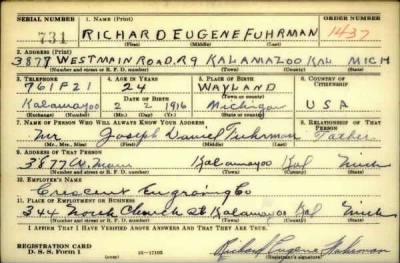 SERIAL NUMBER 1. NAME (Print) ORDER NUMBER
731 RICHARD EUGENE FUHRMAN 1437
(First) (Middle) (Last)
2. ADDRESS (Print)
3877 WEST MAIN ROAD, R9 KALAMAZOO KAL MICH
(Number and street or R. F. D. number) (Town) (County) (State)
3. TELEPHONE 4. AGE IN YEARS 5. PLACE OF BIRTH 6. COUNTRY OF CITIZENSHIP
761F21 24 WAYLAND
DATE OF BIRTH
Kalamazoo 2 2 1916 Michigan USA
(Exchange) (Number) (Mo.) (Day) (Yr.) (State or country)
7. NAME OF PERSON WHO WILL ALWAYS KNOW YOUR ADDRESS 8. RELATIONSHIP OF THAT PERSON
Mr. Joseph Daniel Fuhrman Father
(Mr., Mrs., Miss) (First) (Middle) (Last)
9. ADDRESS OF THAT PERSON
3877 W. Main Kalamazoo Kal Mich
(Number and street or R. F. D. number) (Town) (County) (State)
10. EMPLOYER'S NAME
Crescent Engraving Co
11. PLACE OF EMPLOYMENT OR BUSINESS
344 North Church St Kalamazoo Kal Mich
(Number and street or R. F. D. number) (Town) (County) (State)
I AFFIRM THAT I HAVE VERIFIED ABOVE ANSWERS AND THAT THEY ARE TRUE.
REGISTRATION CARD
D. S. S. Form 1 (over) 16-17105 Richard Eugene Fuhrman
(Registrant's signature)